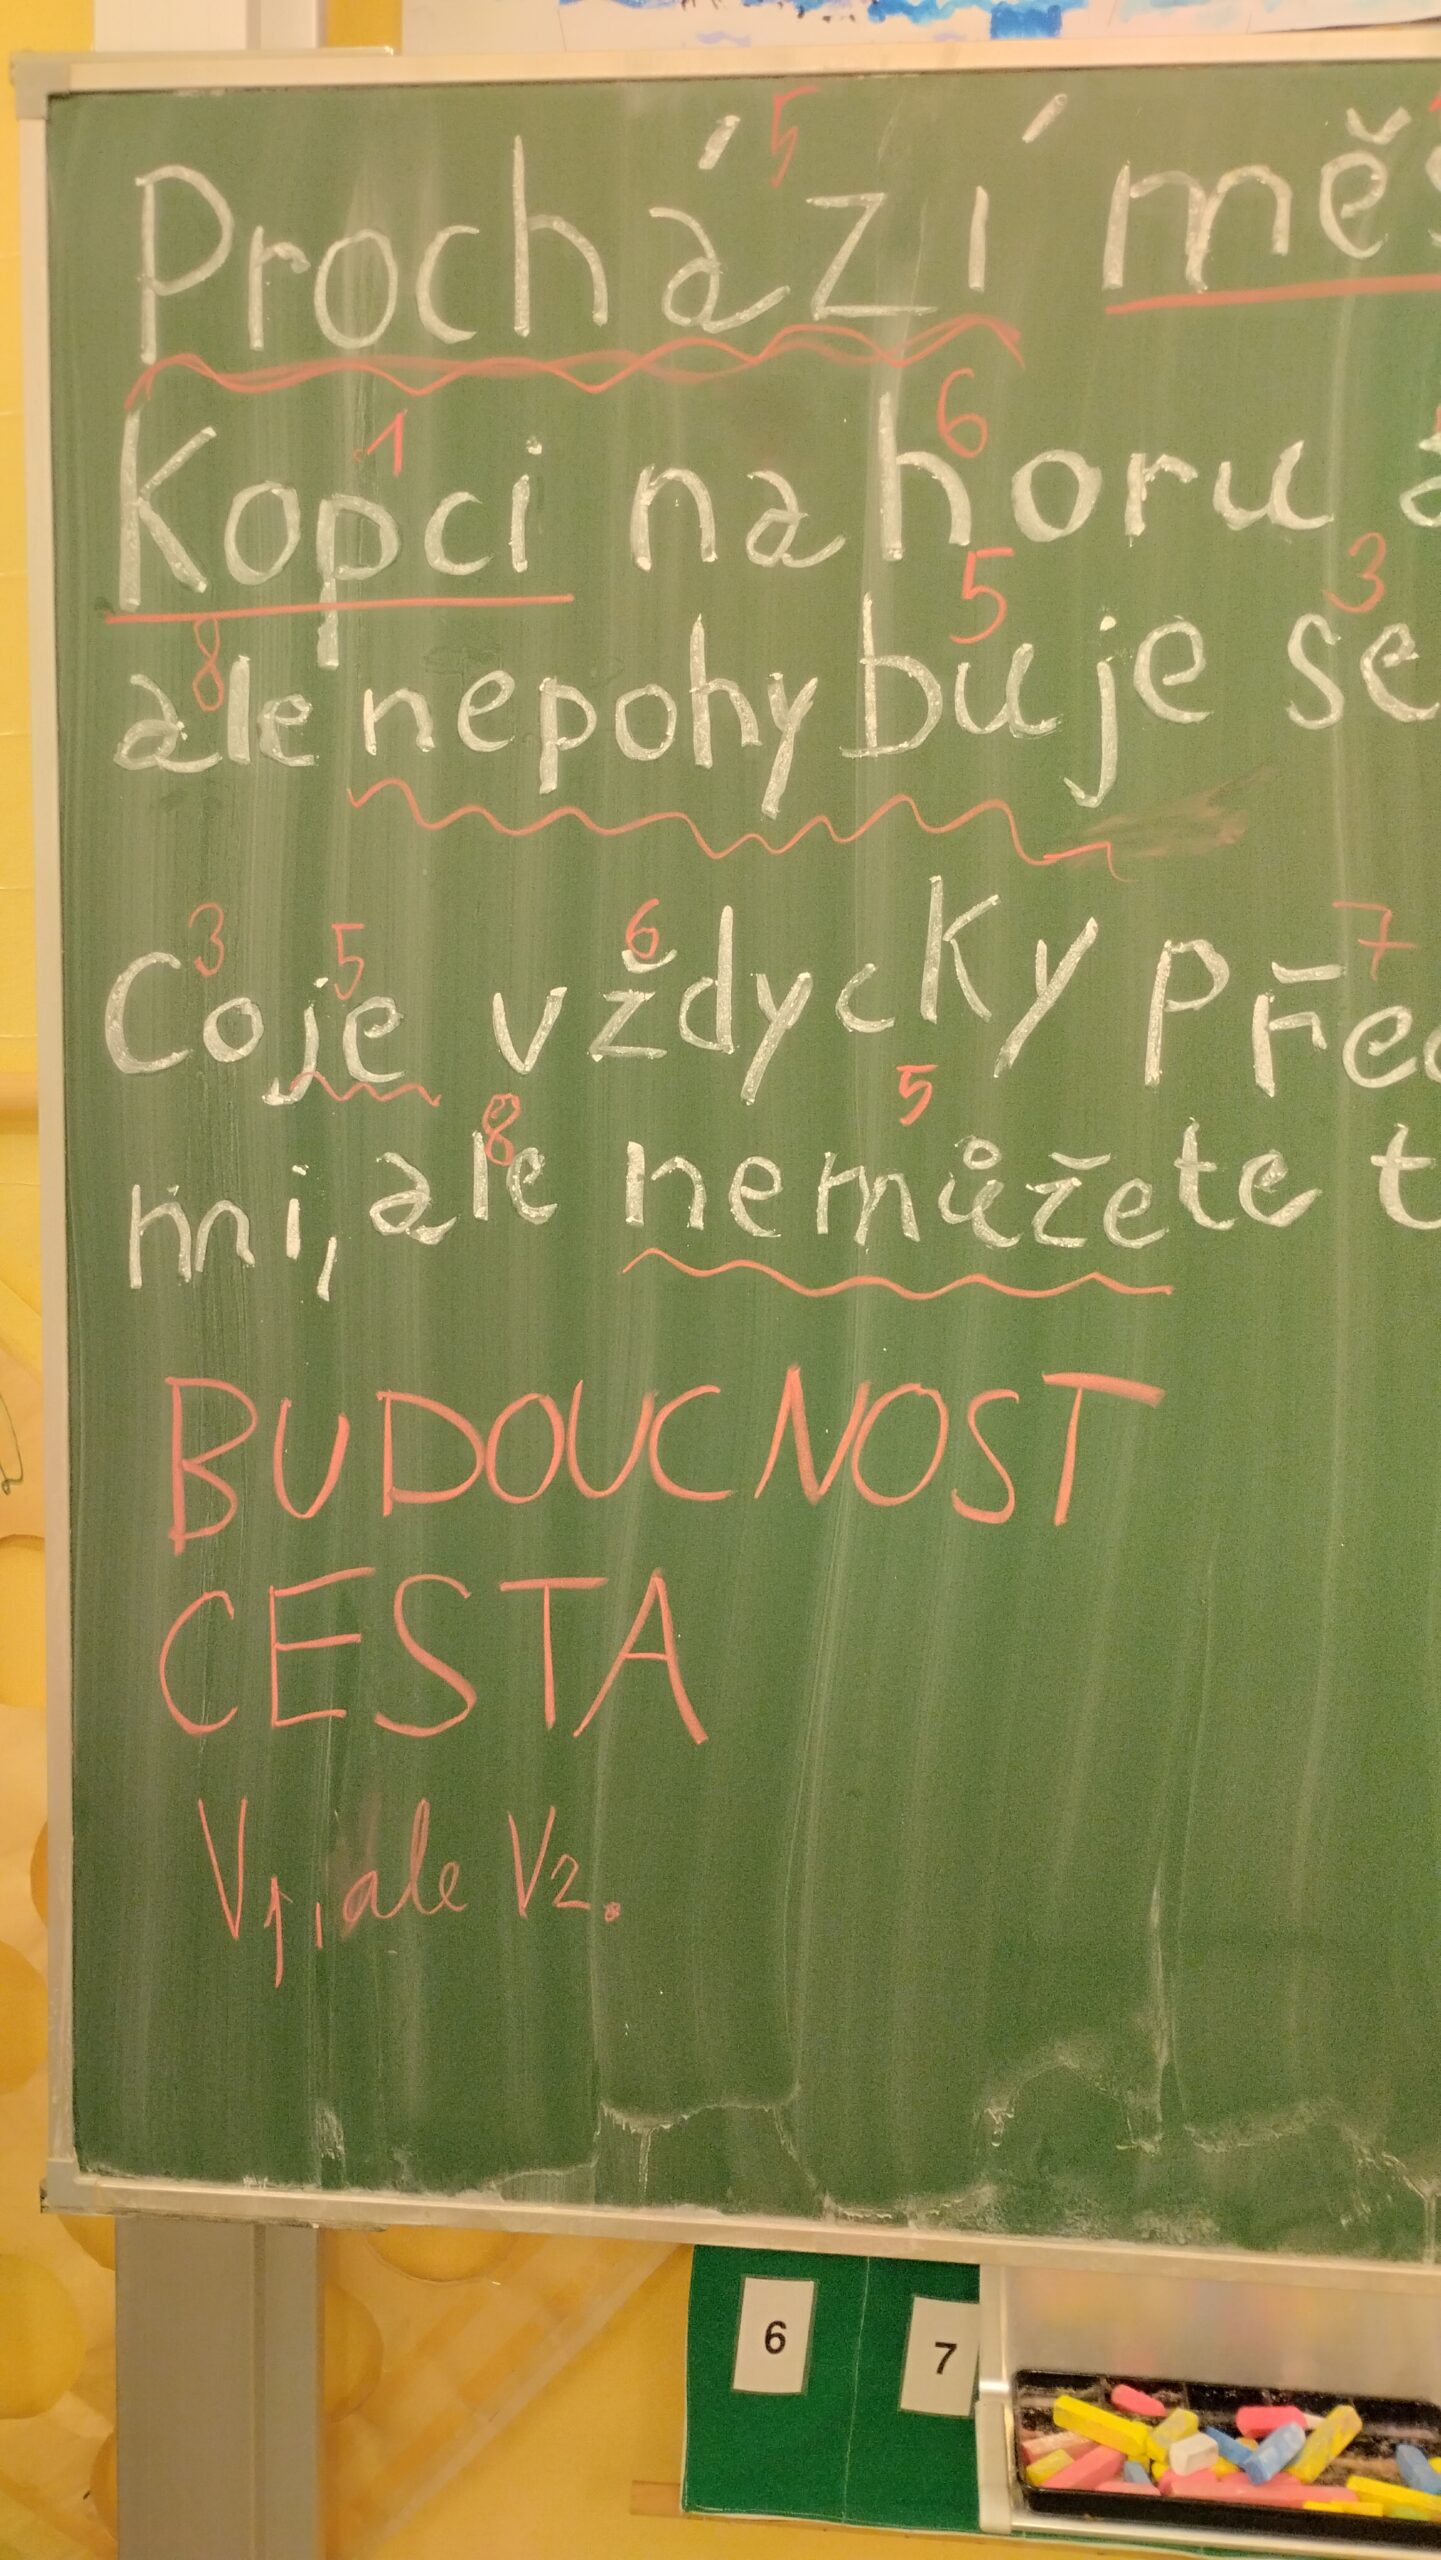 5
Prochází měs
1 6
Kopci nahoru a
8 5 3
ale nepohybuje se
3 5 6 7
Co je vždycky před
8 5
mi, ale nemůžete t
BUDOUCNOST
CESTA
V1, ale V2.
6 7